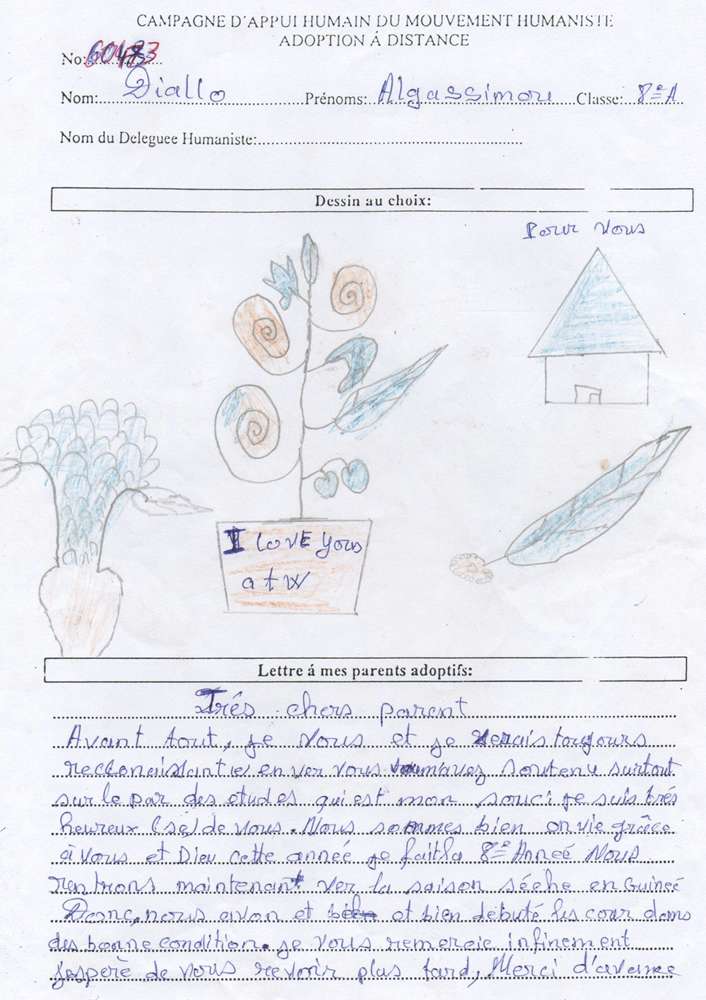 CAMPAGNE D'APPUI HUMAIN DU MOUVEMENT HUMANISTE
ADOPTION Á DISTANCE
No:
Nom: Diallo Prénoms: Algassimou Classe: 8e A
Nom du Deleguee Humaniste:
Dessin au choix:
Pour Vous
I LOVE Yous
a t W
Lettre á mes parents adoptifs:
Très chers parent
Avant tout, je Vous et je serais toujours
recconaistante en ver vous vous m'avez soutenu surtout
sur le par des etudes qui est mon souci je suis très
heureux (se) de vous. Nous sommes bien en vie grâce
à Vous et Dieu cette année je fait la 8e Anneé Nous
rentrons maintenant ver la saison séche en Guineé
Donc, nous avon et et bien debuté les cour dans
des bonne condition. je vous remercie infinement
J'espère de vous revoir plus tard, Merci d'avance